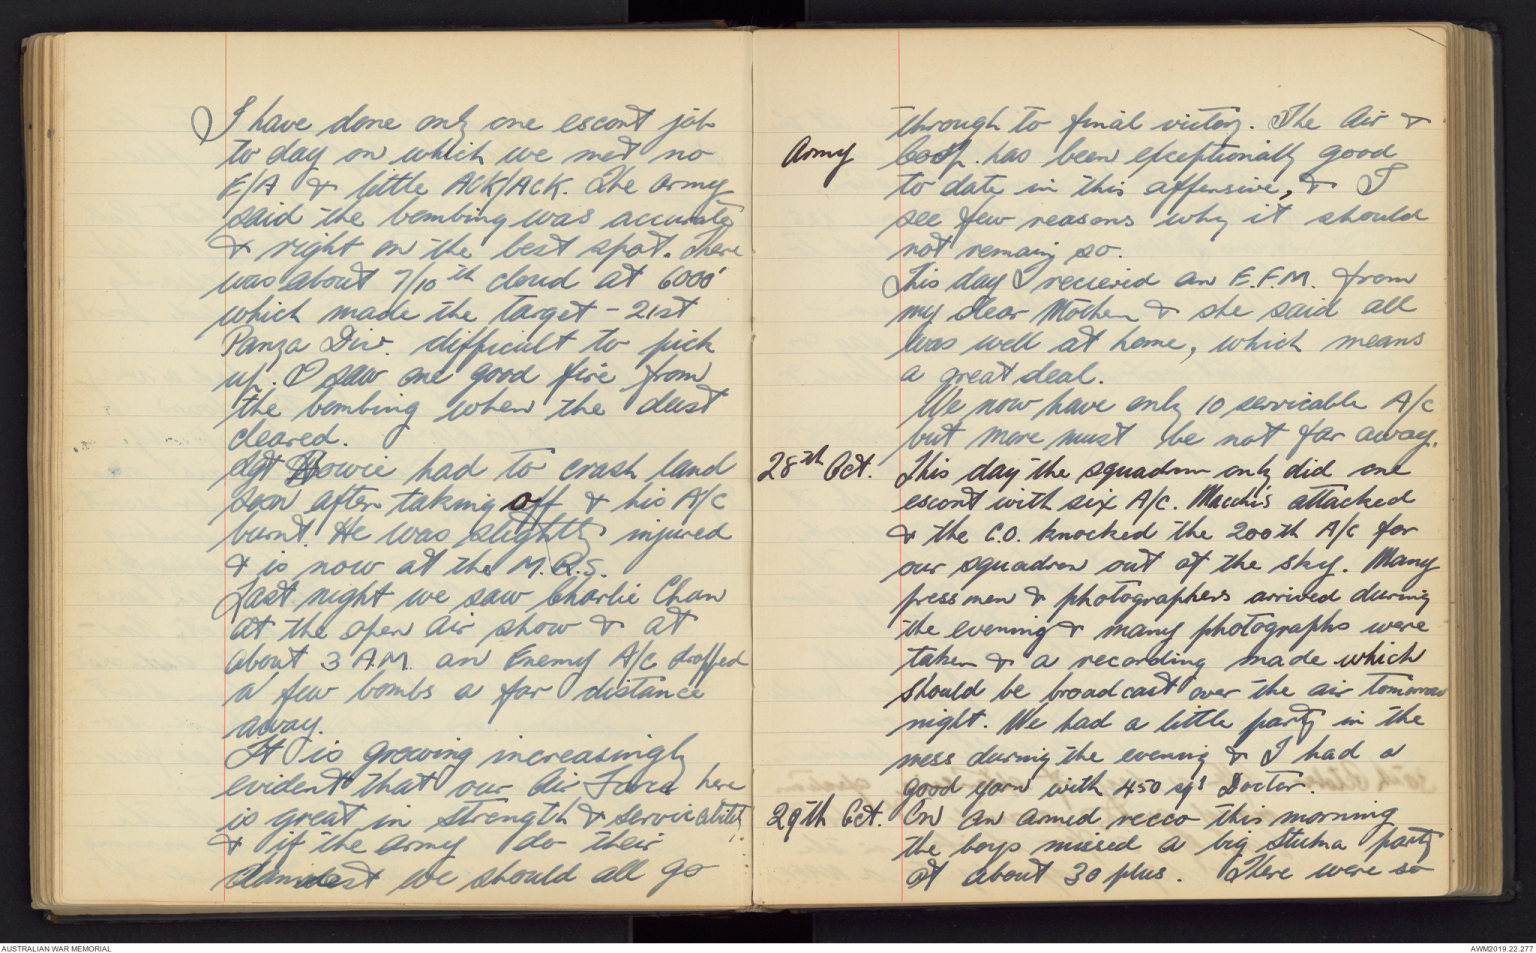 I have done only one escort job
to day on which we met no
E/A & little ACK/ACK. The army
said the bombing was accurate
& right on the best spot. There
was about 7/10th cloud at 6000'
which made the target - 21st
Panza Div. difficult to pick
up. I saw one good fire from
the bombing when the dust
cleared.
Sgt Howie had to crash land
soon after taking off & his A/C
burnt. He was slightly injured
& is now at the M.R.S.
Last night we saw Charlie Chan
at the open air show & at
about 3 A.M. an Enemy A/C dropped
a few bombs a far distance
away.
It is growing increasingly
evident that our Air Force here
is great in strength & servicability
& if the army do their
damnest we should all go
through to final victory. The Air &
Army Coop. has been exceptionally good
to date in this offensive, & I
see few reasons why it should
not remaing so.
This day I recieved an E.F.M. from
my dear Mother & she said all
was well at home, which means
a great deal.
We now have only 10 servicable A/C
but more must be not far away.
28th Oct. This day the squadron only did one
escort with six A/C. Macchi's attacked
& the C.O. knocked the 200th A/C for
our squadron out of the sky. Many
press men & photographers arrived during
the evening & many photographs were
taken & a recording made which
should be broadcast over the air tomorrow
night. We had a little party in the
mess during the evening & I had a
good yarn with 450 sq's Doctor.
29th Oct. On an armed recco this morning
the boys missed a big Stuka party
of about 30 plus. There were so
AUSTRALIAN WAR MEMORIAL
AWM2019.22.277